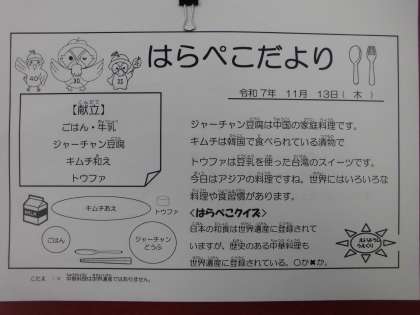 はらぺこだより
令和7年 11月 13日( 木 )
【献立】
ごはん・牛乳
ジャーチャン豆腐
キムチ和え
トウファ
ジャーチャン豆腐は中国の家庭料理です。
キムチは韓国で食べられている漬物で
トウファは豆乳を使った台湾のスイーツです。
今日はアジアの料理ですね。世界にはいろいろな
料理や食習慣があります。
<はらぺこクイズ>
日本の和食は世界遺産に登録されて
いますが、歴史のある中華料理も
世界遺産に登録されている。○か✖か。
MILK
キムチあえ
トウファ
ごはん
ジャーチャン
どうふ
中華料理は世界遺産ではありません。